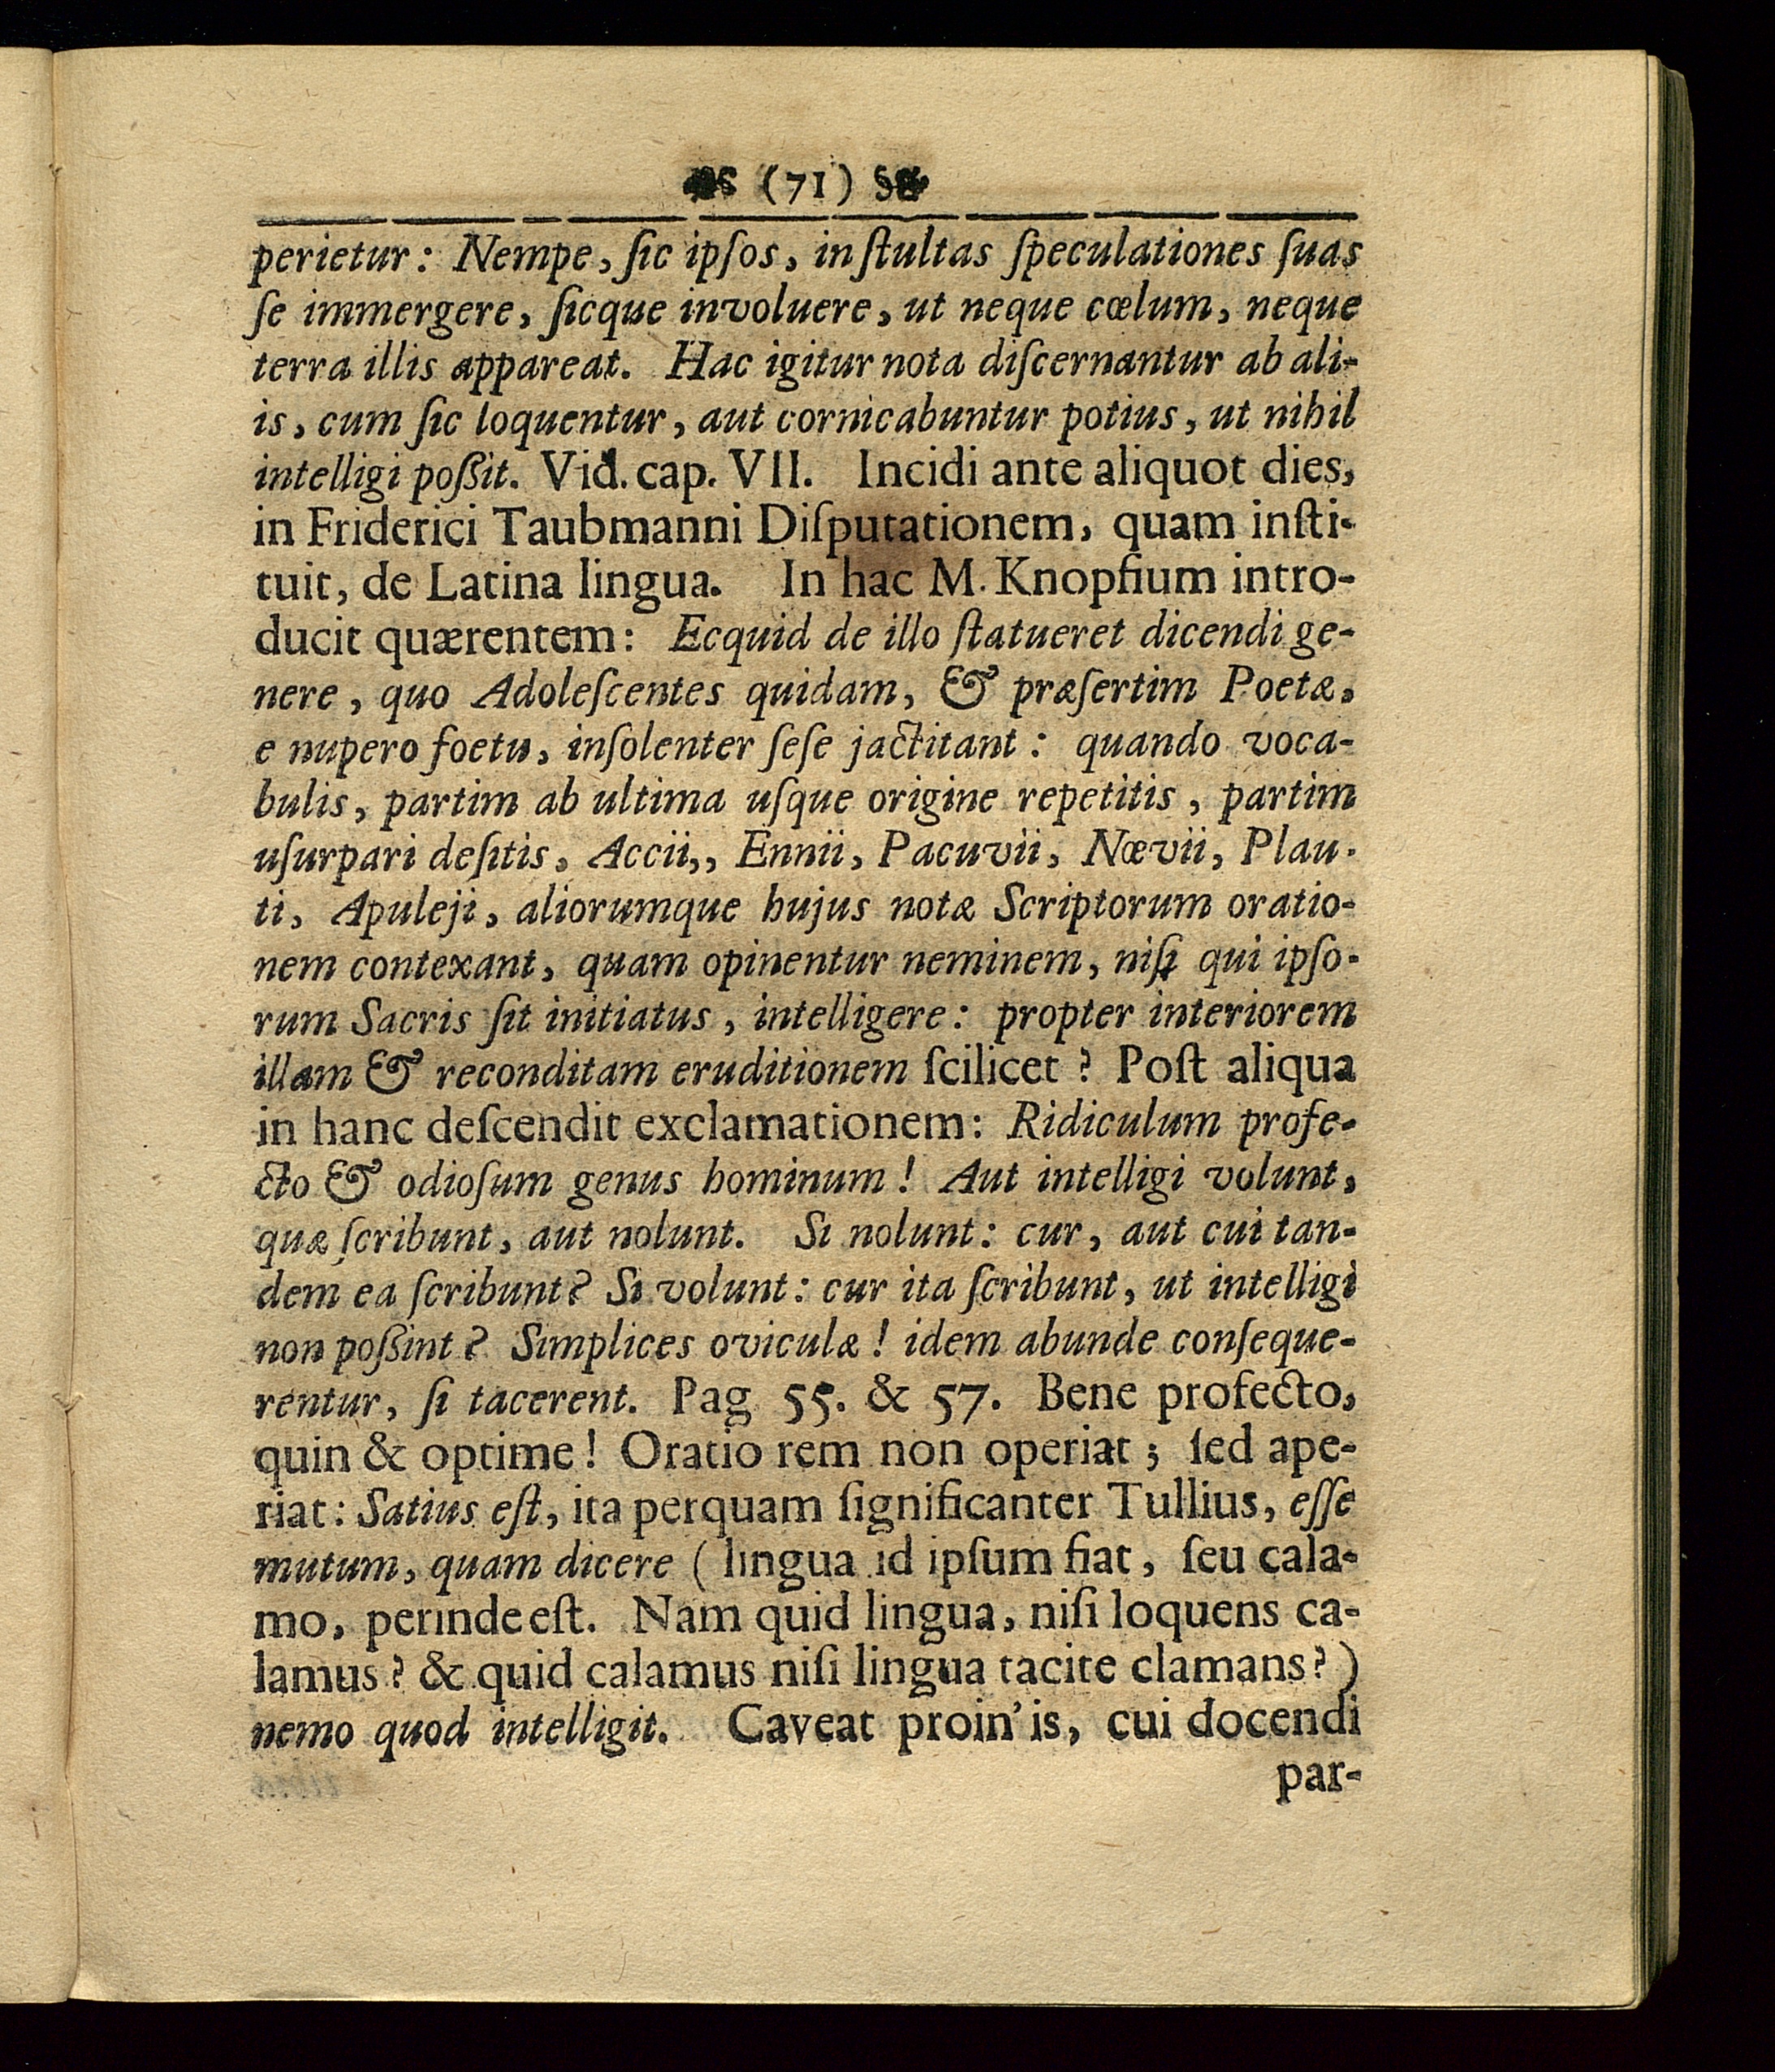 (71)
perietur: Nempe, ſic ipſos, in ſtultas ſpeculationes ſuas
ſe immergere, ſicque involuere, ut neque cœlum, neque
terra illis appareat. Hac igitur nota diſcernantur ab ali-
is, cum ſic loquentur, aut cornicabuntur potius, ut nihil
intelligi poßit. Vid. cap. VII. Incidi ante aliquot dies,
in Friderici Taubmanni Diſputationem, quam inſti-
tuit, de Latina lingua. In hac M. Knopfium intro-
ducit quærentem: Ecquid de illo ſtatueret dicendi ge-
nere, quo Adoleſcentes quidam, & præſertim Poetæ,
e nupero foetu, inſolenter ſeſe jactitant: quando voca-
bulis, partim ab ultima uſque origine repetitis, partim
uſurpari deſitis, Accii,, Ennii, Pacuvii, Nœvii, Plau-
ti, Apuleji, aliorumque hujus notæ Scriptorum oratio-
nem contexant, quam opinentur neminem, niſi qui ipſo-
rum Sacris ſit initiatus, intelligere: propter interiorem
illam & reconditam eruditionem ſcilicet? Poſt aliqua
in hanc deſcendit exclamationem: Ridiculum profe-
cto & odioſum genus hominum! Aut intelligi volunt,
quæ ſcribunt, aut nolunt. Si nolunt: cur, aut cui tan-
dem ea ſcribunt? Si volunt: cur ita ſcribunt, ut intelligi
non poßint? Simplices oviculæ! idem abunde conſeque-
rentur, ſi tacerent. Pag 55. & 57. Bene profecto,
quin & optime! Oratio rem non operiat; ſed ape-
riat: Satius eſt, ita perquam ſignificanter Tullius, eſſe
mutum, quam dicere (lingua id ipſum fiat, ſeu cala-
mo, perinde eſt. Nam quid lingua, niſi loquens ca-
lamus? & quid calamus niſi lingua tacite clamans?)
nemo quod intelligit. Caveat proin' is, cui docendi
par-